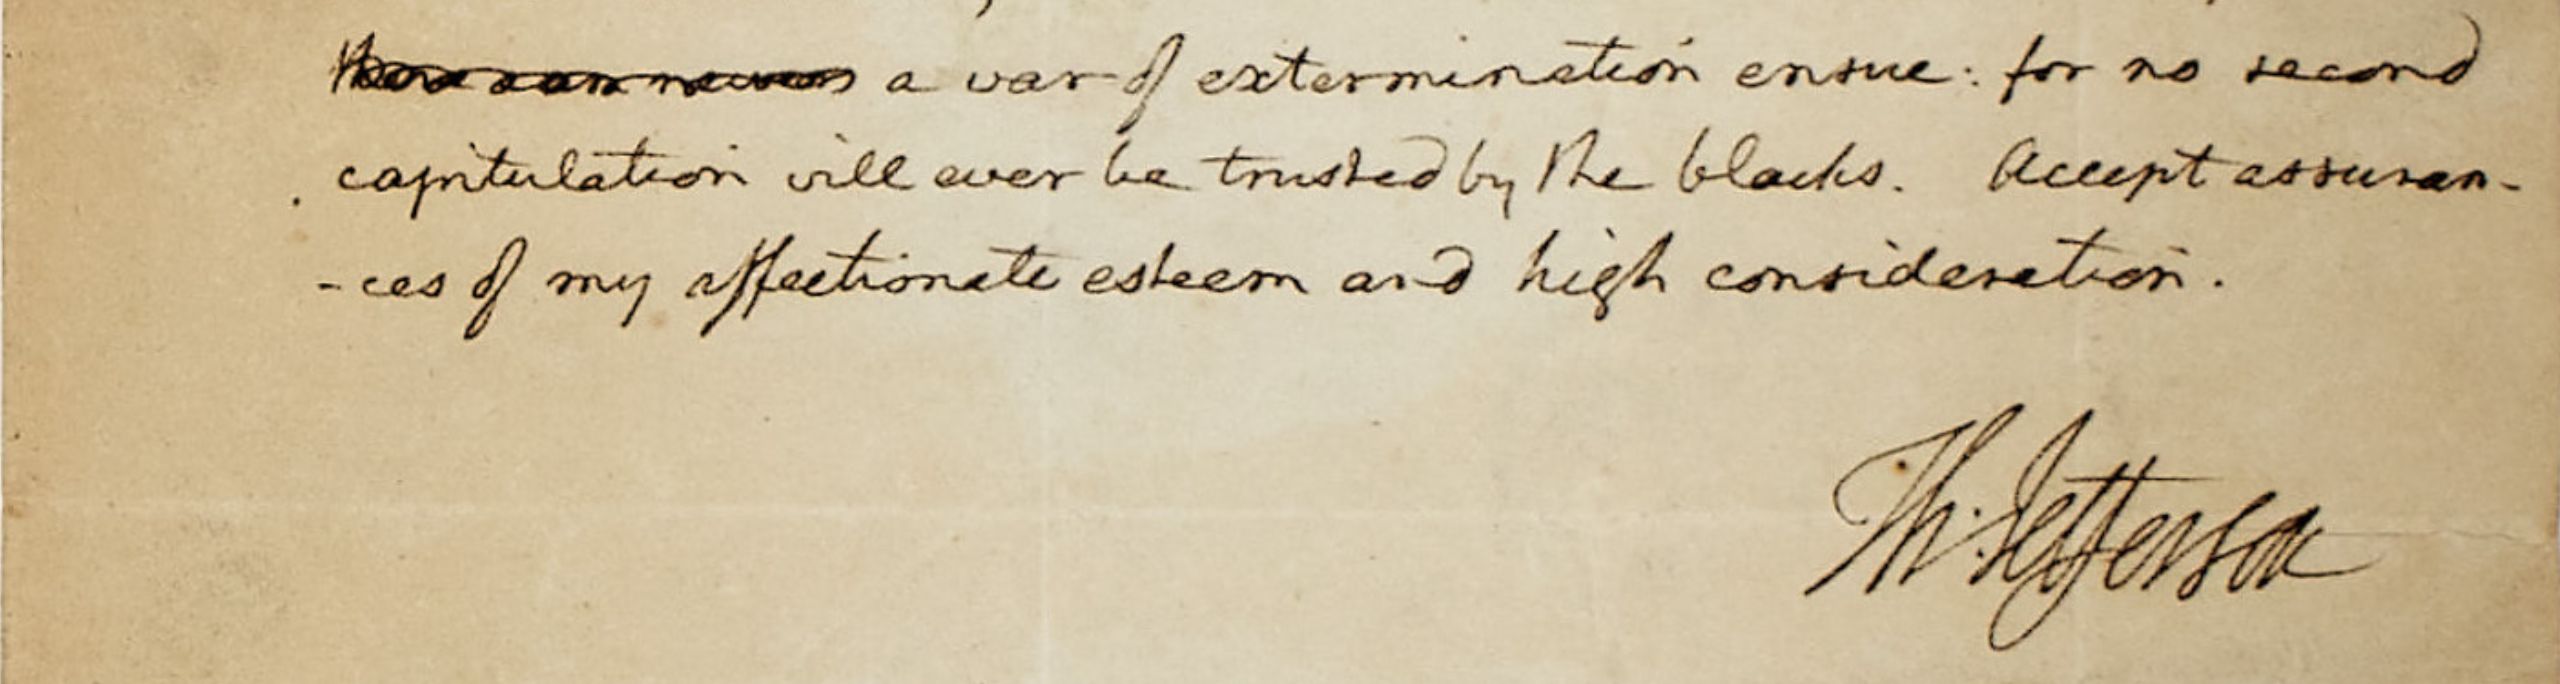 a war of extermination ensue: for no second
capitulation will ever be trusted by the blacks. Accept assuran-
-ces of my affectionate esteem and high consideration.
Th: Jefferson